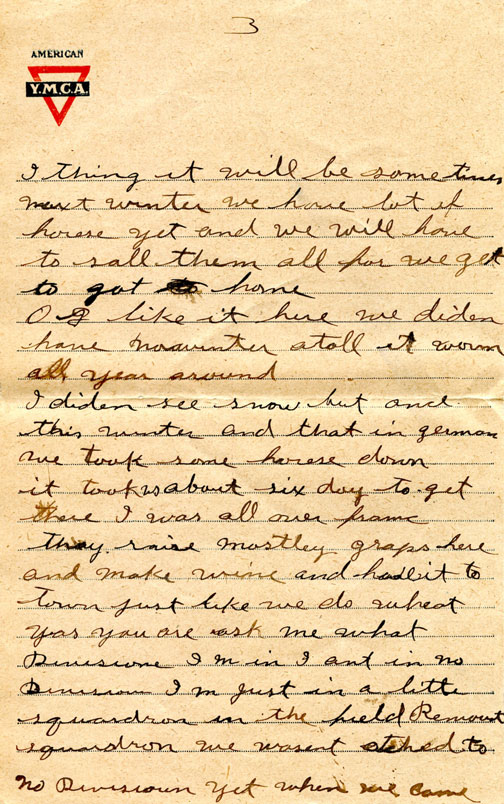 3
AMERICAN
Y.M.C.A.
I thing it will be sometimes
maxt winter we have lot of
horese yet and we will have
to sall them all for we get
to gat to home
O I like it here we diden
have nowinter atall it worm
all year around
I diden see snow but and
this winter and that in german
we took some horese down
it took us about six day to get
there I was all over frame
thay raise mostley graps here
and make wine and hall it to
town just like we do wheat
yas you are ask me what
Divisione I m in I ant in no
Division I m just in a little
squardron in the field Remount
squardron we wasent atched to
no Divisioun yet when we came